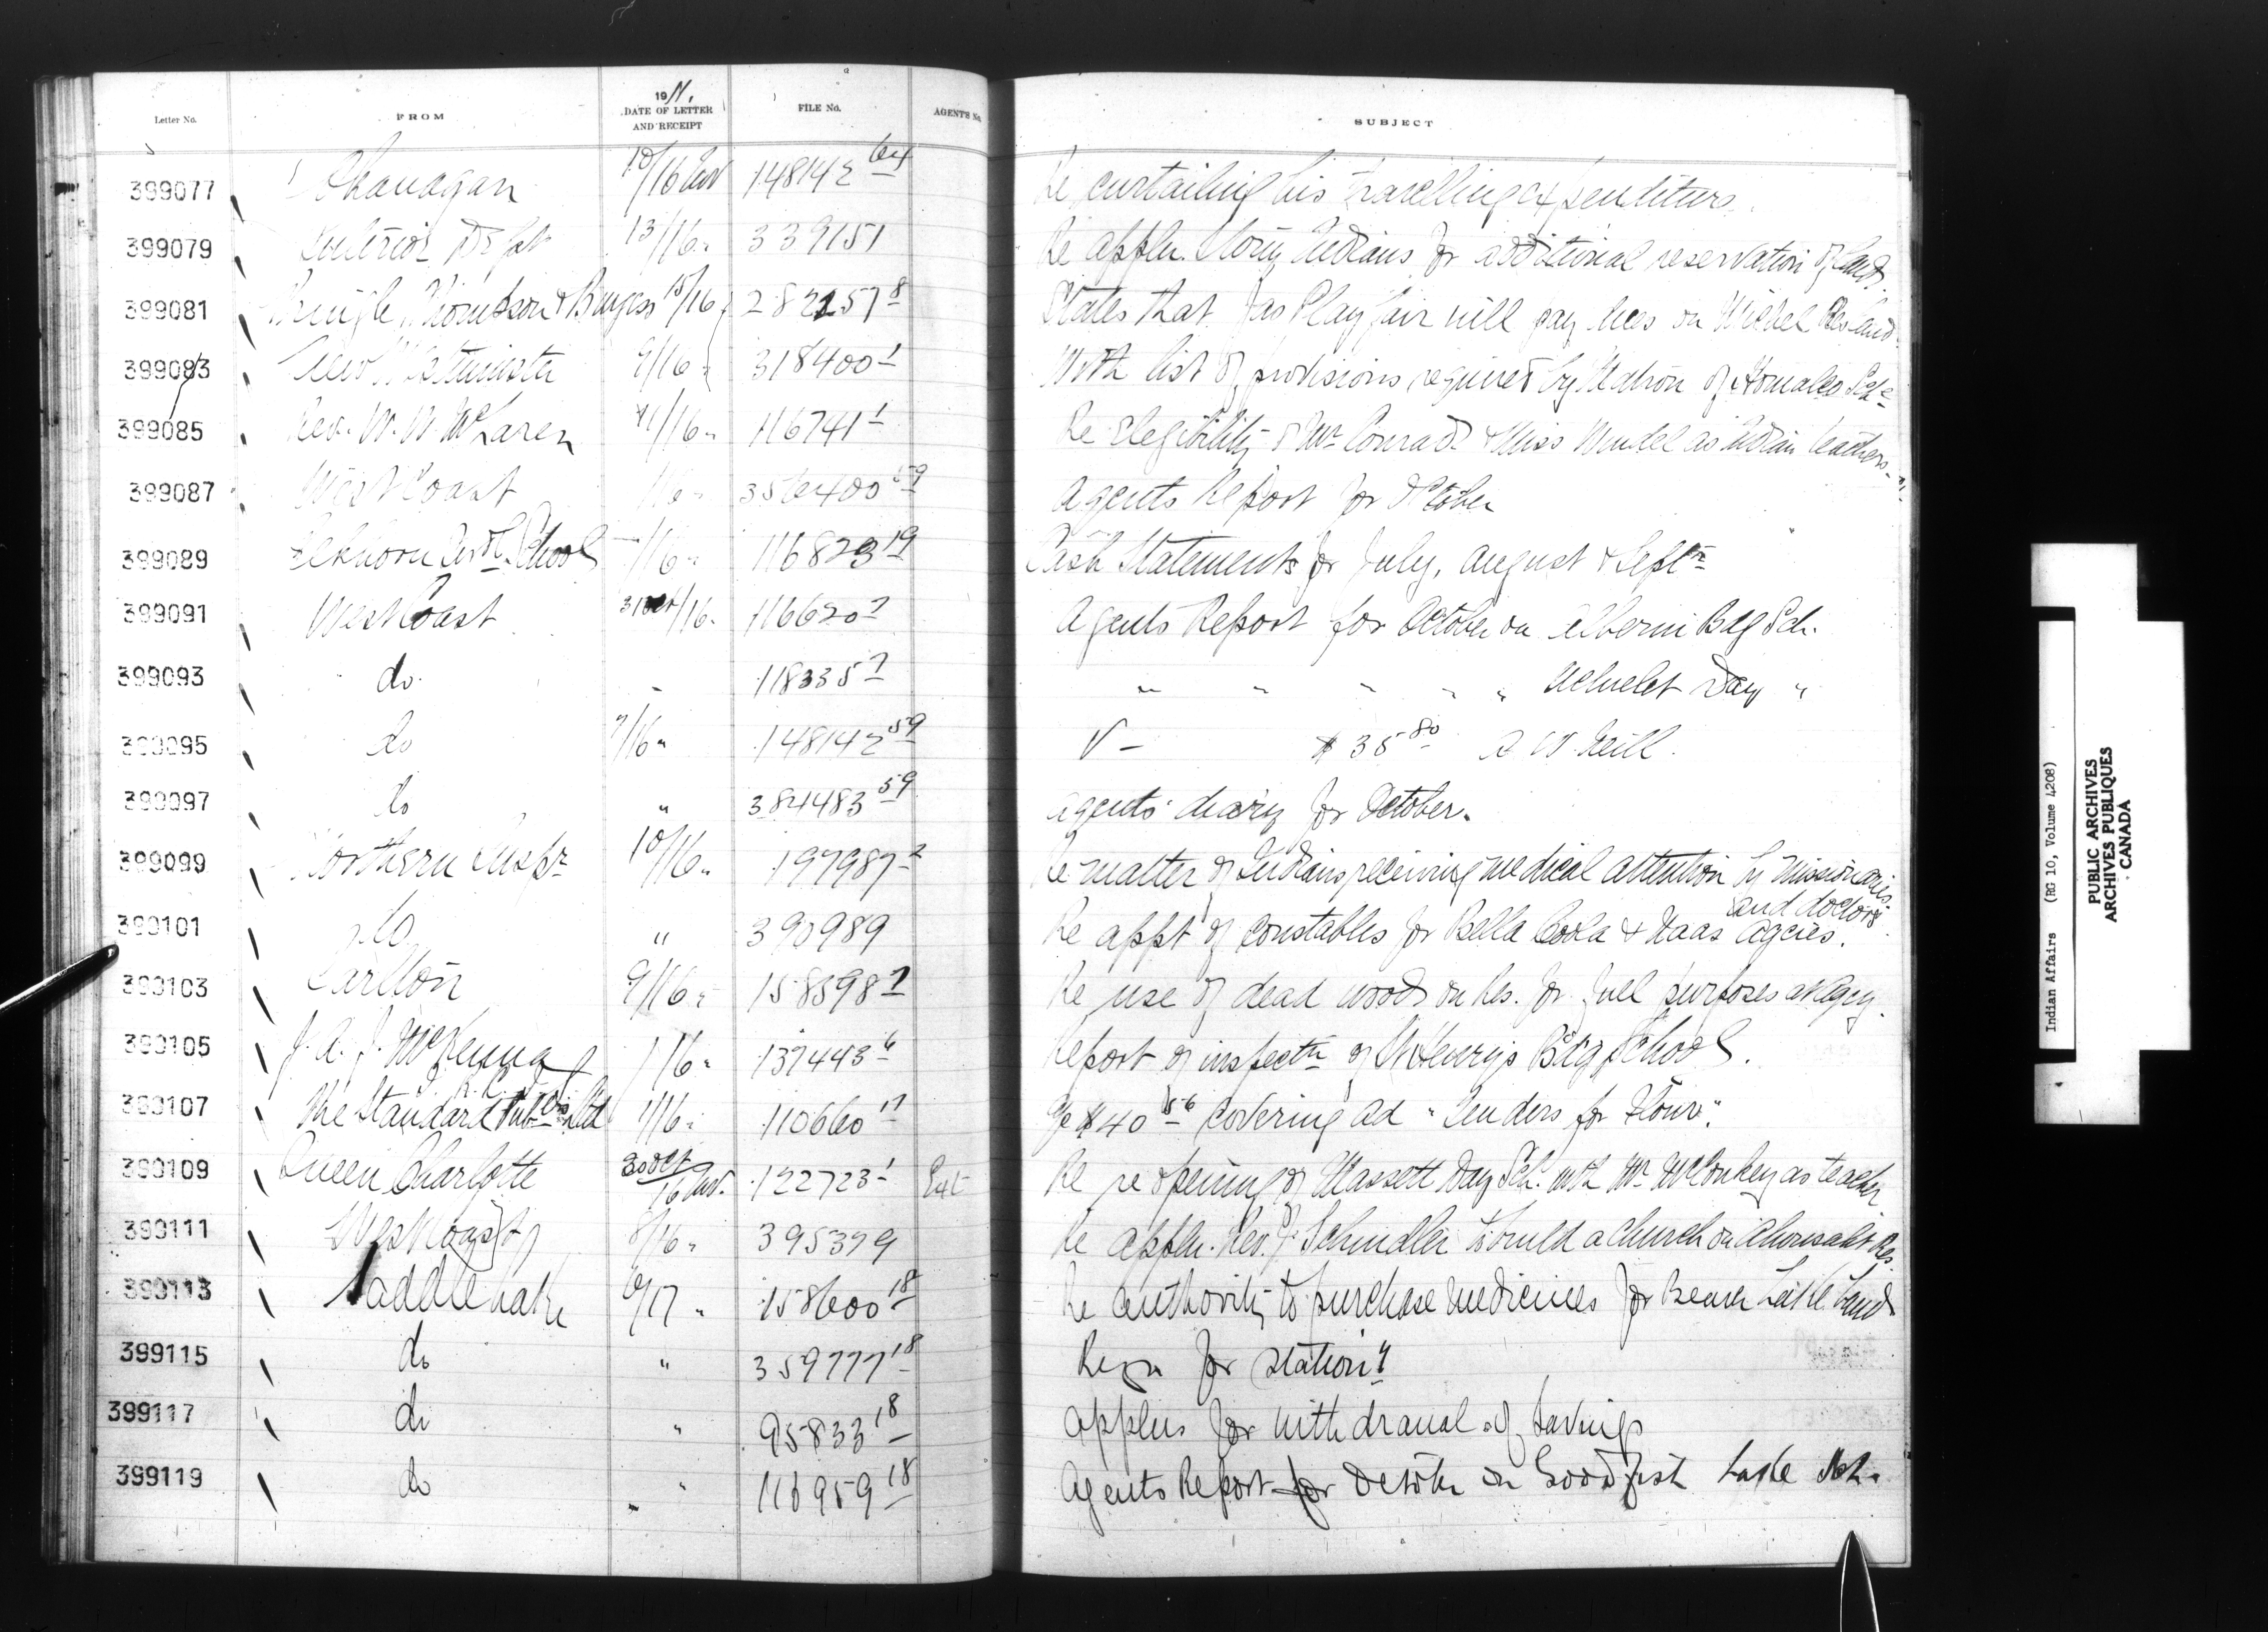 Letter No. FROM 1911. DATE OF LETTER AND RECEIPT FILE No. AGENT'S No. SUBJECT
399077 Okanagan 10/16 Nov 148142 Re curtailing his travelling expenditure.
399079 Interior Dept 13/16 " 339151 Re appln. Stony Indians for additional reservation of land.
399081 Pringle, Thompson & Burgess 15/16 " 282157 8 States that Jas Playfair will pay dues on Res land
399083 New Westminster 9/16 " 318400 1 With list of provisions required by Matron of Homalco Sch
399085 Rev. W. W. McLaren 11/16 " 116741 1 Re Elegibility of Mr Conrad & Miss as Indian teachers
399087 West Coast /16 " 356400 59 Agents Report for October
399089 Elkhorn Indl School /16 " 116823 19 Cash Statements for July, August & Septr
399091 West Coast 31 Oct/16 " 116620 7 Agents Report for October on Alberni Bdg Sch.
399093 do. " 118335 7 " " " " " Ucluelet Day "
399095 do 7/16 " 148142 59 V – $35 80 A W. Neill.
399097 do " 384483 59 Agents' diary for October.
399099 Northern Inspr 10/16 " 197987 2 Re matter of Indians receiving medical attention by missionaries
and doctors.
399101 do " 390989 Re appt of constables for Bella Coola & Naas Agcies.
399103 Carlton 9/16 " 158598 7 Re use of dead wood on Res. for fuel purposes at Agcy.
399105 J. A. J. McKenna /16 " 137443 6 Report of inspectn of St Henrys Bdg School.
399107 The Standard Ltd 11/16 " 110660 17 $40 56 covering ad "Tenders for Flour".
399109 Queen Charlotte 30 Oct/16 Nov. 122723 1 Re re opening of Massett Day Sch. with Mr McConkey as teacher
399111 West Coast 8/16 " 395379 Re appln. Rev. J. Schindler to build a church on Ahousaht Res.
399113 Saddle Lake 10/17 " 158600 18 Re authority to purchase medicines for Beaver Lake Band
399115 do " 359777 18 Reqn for Stationy
399117 do " 95833 18 Applns for withdrawal of Savings
399119 do " 116959 18 Agents Report for October on Goodfish Lake Sch.
Indian Affairs (RG 10, Volume 4208)
PUBLIC ARCHIVES
ARCHIVES PUBLIQUES
CANADA